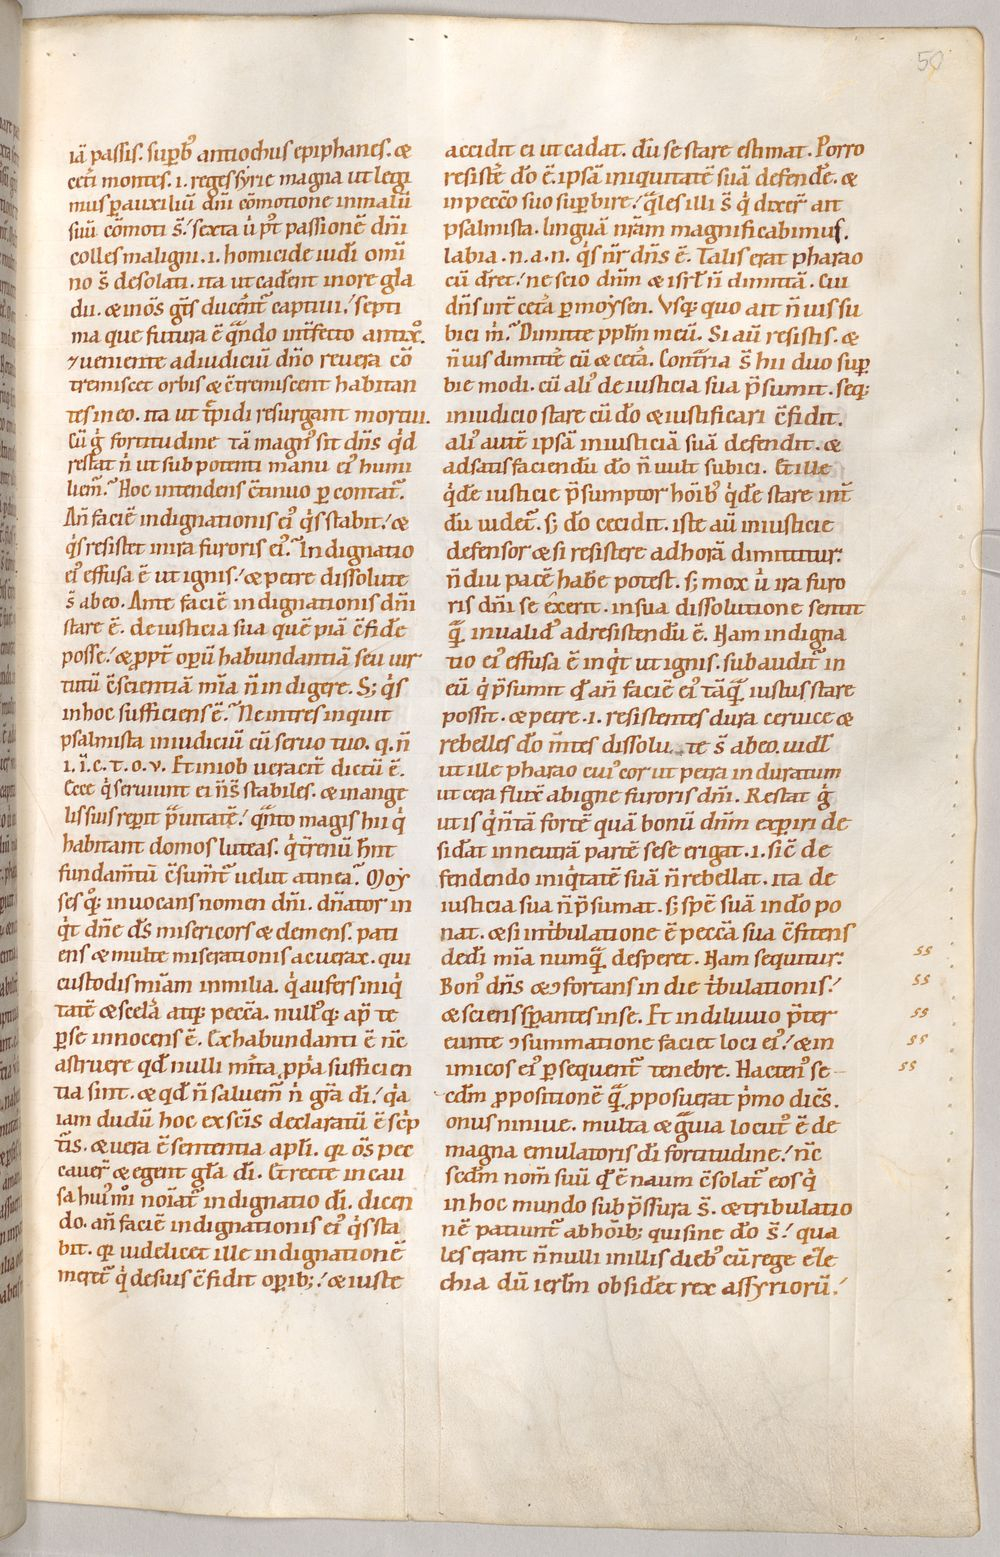 50
iā passis. supb᷒ antiochus epiphanes. &
cet̄i montes. i. reges syrie magna ut legi
mus p auxiliū dn̄i cōmotione in malū
suū cōmoti s̄. sexta u̇ p᷒t passionē dn̄i
colles maligni. i. homicide iudi omī
no s̄ desolati. ita ut cadent in ore gla
dii. & in om̄s gn̄s ducent᷑ captiui. septi
ma que futura ē qn̄do int̄fecto antix᷒o.
⁊ ueniente ad iudiciū dn̄o reuera cō
tremiscet orbis & c̄tremiscent habitan
tes in eo. ita ut t̄pidi resurgant mortui.
Cū g̊ fortitudine tā magn᷒ sit dn̄s qd̄
restat n̄ ut sub potenti manu ei᷒ humi
liem᷒. Hoc intendens c̄tinuo p contat᷒.
An̄ faciē indignationis ei᷒ q̊s stabit. &
q̊s resistet in ira furoris ei᷒. Indignatio
ei᷒ effusa ē ut ignis. & petre dissolute
s̄ ab eo. Ante faciē indignationis dn̄i
stare ē. de iusticia sua quē piā c̄fide
posse. & ppt̄ opū habundantiā seu uir
tutū c̄scientiā mīa n̄ indigere. S; q̊s
in hoc sufficiens ē. Ne intres inquit
psalmista in iudiciū cū seruo tuo. q. n̄
i. ī. c. t. o. v. Et in iob ueracit̄ dictū ē.
Ecce q̊ seruiunt ei n̄ s̄ stabiles. & in ange
lis suis repit prauitatē. qn̄to magis hii q̊
habitant domos luteas. q̊ t̄renū hn̄t
fundam̄tū c̄sum̄t᷑ uelut a tinea. Moy
ses q᷒; inuocans nomen dn̄i. dn̄ator in
q̊t dn̄e ds̄ misericors & clemens. pati
ens & multe miserationis ac uerax. qui
custodis mīam in milia. q̊ aufers iniq̊
tatē & scelā atq; pecc̄a. null᷒q; ap̄ te
p se innocens ē. Ex habundanti ē nc̄
astruere qd̄ nulli mīta ppa sufficien
tia sint. & qd̄ n̄ saluem᷒ n̄ gr̄a di̅. q̊a
iam dudū hoc ex scīs declaratū ē sc̄p
t᷒is. & uera ē sententia apl̄i. qr ōs pec
cauer̄ & egent gl̄a di̅. Et recte in cau
sa hui᷒m̊i noīat᷑ indignatio di̅. dicen
do. an̄ faciē indignationis ei᷒ q̊s sta
bit. qr uidelicet ille indignationē
meret᷑ q̊ de suis c̄fidit opib;. & iuste
accidit ei ut cadat. dū se stare estimat. Porro
resist̄e dō ē. ipsā iniquitatē suā defendē. &
in pecc̄o suo supbire. q̄les illi s̄ q̊ dixer̄ ait
psalmista. linguā nr̄am magnificabimus.
labia. n. a. n. q̊s nr̄ dn̄s ē. Talis erat pharao
cū dr̄et. nescio dn̄m & isrl̄ n̄ dimittā. Cui
dn̄s int̄ cet̄a p moysen. Vsq; quo ait n̄ uis su
bici m̊. Dimitte pplm̄ meū. Si aū resistis. &
n̄ uis dimitt̄e eū & cet̄a. Cont̄ria s̄ hii duo sup
bie modi. cū ali᷒ de iusticia sua p̄sumit. seq;
in iudicio stare cū dō & iustificari c̄fidit.
ali᷒ autē ipsā iniusticiā suā defendit. &
ad satisfaciendū dō n̄ uult subici. Et ille
q̊de iusticie p̄sumptor hōib᷒ q̊de stare int̄
dū uidet᷑. s; dō cecidit. iste aū iniusticie
defensor & si resistere ad horā dimittitur.
n̄ diu pacē habē potest. s; mox u̇ ira furo
ris dn̄i se exerit. in sua dissolutione sentit
q̄ inualid᷒ ad resistendū ē. Nam indigna
tio ei᷒ effusa ē inq̊t ut ignis. subaudit᷑ in
eū q̊ p̄sumit qd̄ an̄ faciē ei᷒ tāq̄ iustus stare
possit. & petre. i. resistentes dura ceruice &
rebelles dō m̄tes dissolute s̄ ab eo. uidl̄
ut ille pharao cui᷒ cor ut petra induratum
ut cera fluxē ab igne furoris dn̄i. Restat g̊
ut is q̊ n̄tā fortē quā bonū dn̄m experiri de
sid̄at in neutrā partē sese erigat. i. sic̄ de
fendendo iniq̊tatē suā n̄ rebellat. ita de
iusticia sua n̄ p̄sumat. s; spē suā in dō po
nat. & si in t̄bulatione ē pecc̄a sua c̄fitens
de di̅ mīa numq̄ desperet. Nam sequitur.
Bon᷒ dn̄s & ꝯfortans in die t̄bulationis.
& sciens sperantes in se. Et in diluuio p̄ter
eunte ꝯsummatione faciet loci ei᷒. & in
imicos ei᷒ p sequent᷑ tenebre. Hacten᷒ se
cdm̄ ppositionē q̄ pposuerat p̊mo dicēs.
onus niniue. multa & ḡuia locut᷒ ē de
magna emulatoris di̅ fortitudine. nc̄
secdm̄ nom̄ suū qd̄ ē naum c̄solat᷑ eos q̊
in hoc mundo sub p̄ssura s̄. & tribulatio
nē patiunt᷑ ab hōib; qui sine dō s̄. qua
les erant n̄nulli in illis dieb᷒ cū rege ezle
chia dū ierlm̄ obsid̄et rex assyriorū.
ss
ss
ss
ss
ss